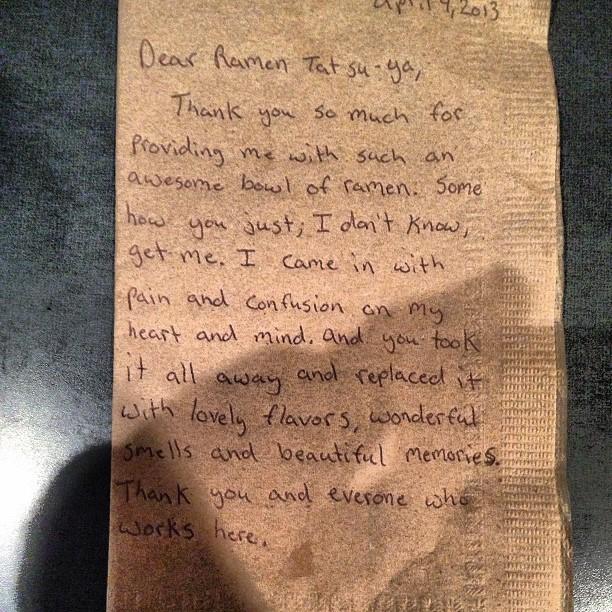 April 9, 2013
Dear Ramen Tatsu-ya,
Thank you so much for
providing me with such an
awesome bowl of ramen. Some
how you just, I don't know,
get me. I came in with
pain and confusion on my
heart and mind. And you took
it all away and replaced it
with lovely flavors, wonderful
smells and beautiful memories.
Thank you and everone who
works here.